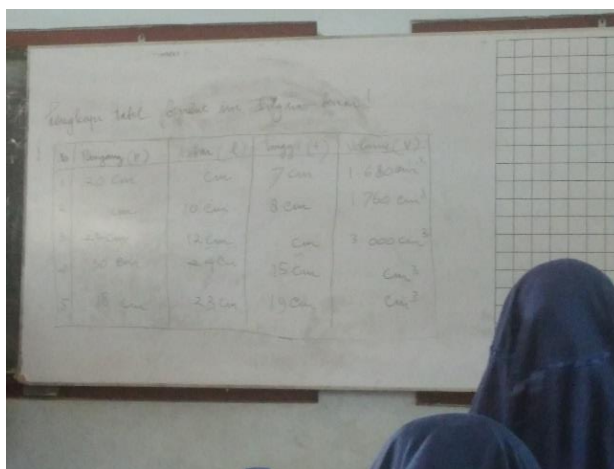 Lengkapi tabel berikut ini dengan benar!
No Panjang (P) Lebar (l) Tinggi (t) Volume (V)
1 20 cm cm 7 cm 1.680 cm³
2 cm 10 cm 8 cm 1.760 cm³
3 25 cm 12 cm cm 3.000 cm³
4 30 cm cm 15 cm cm³
5 18 cm 23 cm 19 cm cm³